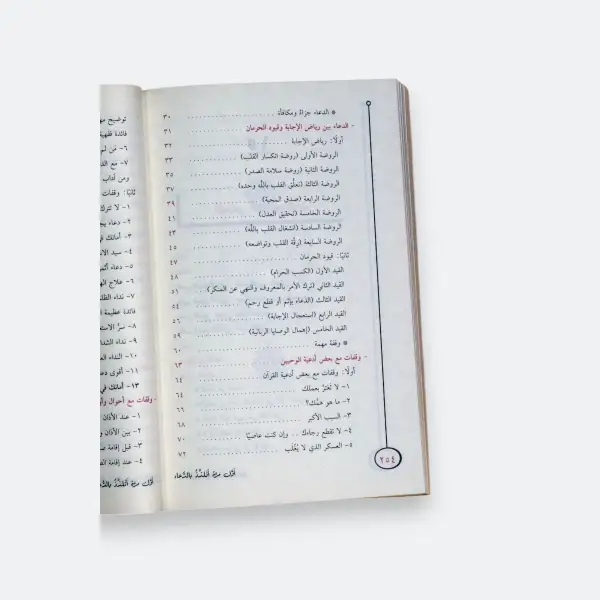 * الدعاء جزاءٌ ومكافأة ................ ٣٠
- الدعاء بين رياض الإجابة وقيود الحرمان ................ ٣١
أولًا: رياض الإجابة ................ ٣٢
الروضة الأولى (روضة انكسار القلب) ................ ٣٣
الروضة الثانية (روضة سلامة الصدر) ................ ٣٥
الروضة الثالثة (تعلّق القلب بالله وحده) ................ ٣٧
الروضة الرابعة (صدق المحبة) ................ ٣٩
الروضة الخامسة (تحقيق العدل) ................ ٤١
الروضة السادسة (انشغال القلب بالله) ................ ٤٣
الروضة السابعة (رقّة القلب وتواضعه) ................ ٤٥
ثانيًا: قيود الحرمان ................ ٤٧
القيد الأول (الكسب الحرام) ................ ٤٨
القيد الثاني (ترك الأمر بالمعروف والنهي عن المنكر) ................ ٥١
القيد الثالث (الدعاء بإثم أو قطع رحم) ................ ٥٤
القيد الرابع (استعجال الإجابة) ................ ٥٦
القيد الخامس (إهمال الوصايا الربانية) ................ ٥٩
* وقفة مهمة ................ ٦٠
- وقفات مع بعض أدعية الوحيين ................ ٦٣
أولًا: وقفات مع بعض أدعية القرآن ................ ٦٤
١- لا تغترّ بعملك ................ ٦٤
٢- ما هو همّك؟ ................ ٦٦
٣- السبب الأكبر ................ ٦٨
٤- لا تقطع رجاءك .. وإن كنت عاصيًا ................ ٧٠
٥- العسكر الذي لا يُغلَب ................ ٧٢
٢٥٤
أوّل مرة أتلذّذ بالدّعاء
توضيح
فائدة فقهية
٦- من لم
٧- مع
ومن آداب
ثانيًا: وقفات
١- لا تترك
٢- دعاء
٣- أمانك
٤- سيد
٥- دعاء
٦- علاج
٧- نداء
فائدة عظيمة
٨- سرّ
٩- نداء
١٠- النداء
١١- أقوى
١٣- أمانك في
- وقفات مع أحوال
١- عند الأذان
٢- بين الأذان
٣- قبل إقامة
٤- عند إقامة
أوّل مرة أتلذّذ